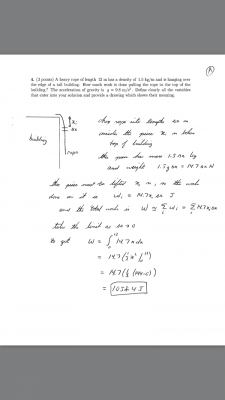 A
4. (2 points) A heavy rope of length 12 m has a density of 1.5 kg/m and is hanging over
the edge of a tall building. How much work is done pulling the rope to the top of the
building? The acceleration of gravity is g = 9.8 m/s². Define clearly all the variables
that enter into your solution and provide a drawing which shows their meaning.
building
xᵢ
Δx
rope
Chop rope into lengths Δx m
consider the piece xᵢ m below
top of building
this piece has mass 1.5 Δx kg
and weight 1.5 g Δx = 14.7 Δx N
this piece must be lifted xᵢ m, so the work
done on it is Wᵢ = 14.7xᵢ Δx J
and the total work is W ≃ Σ Wᵢ = Σ 14.7xᵢ Δx
i i
take the limit as Δx→0
to get W = ∫₀¹² 14.7 x dx
= 14.7 (½ x² |₀¹²)
= 14.7 (½ (144-0))
= 1058.4 J